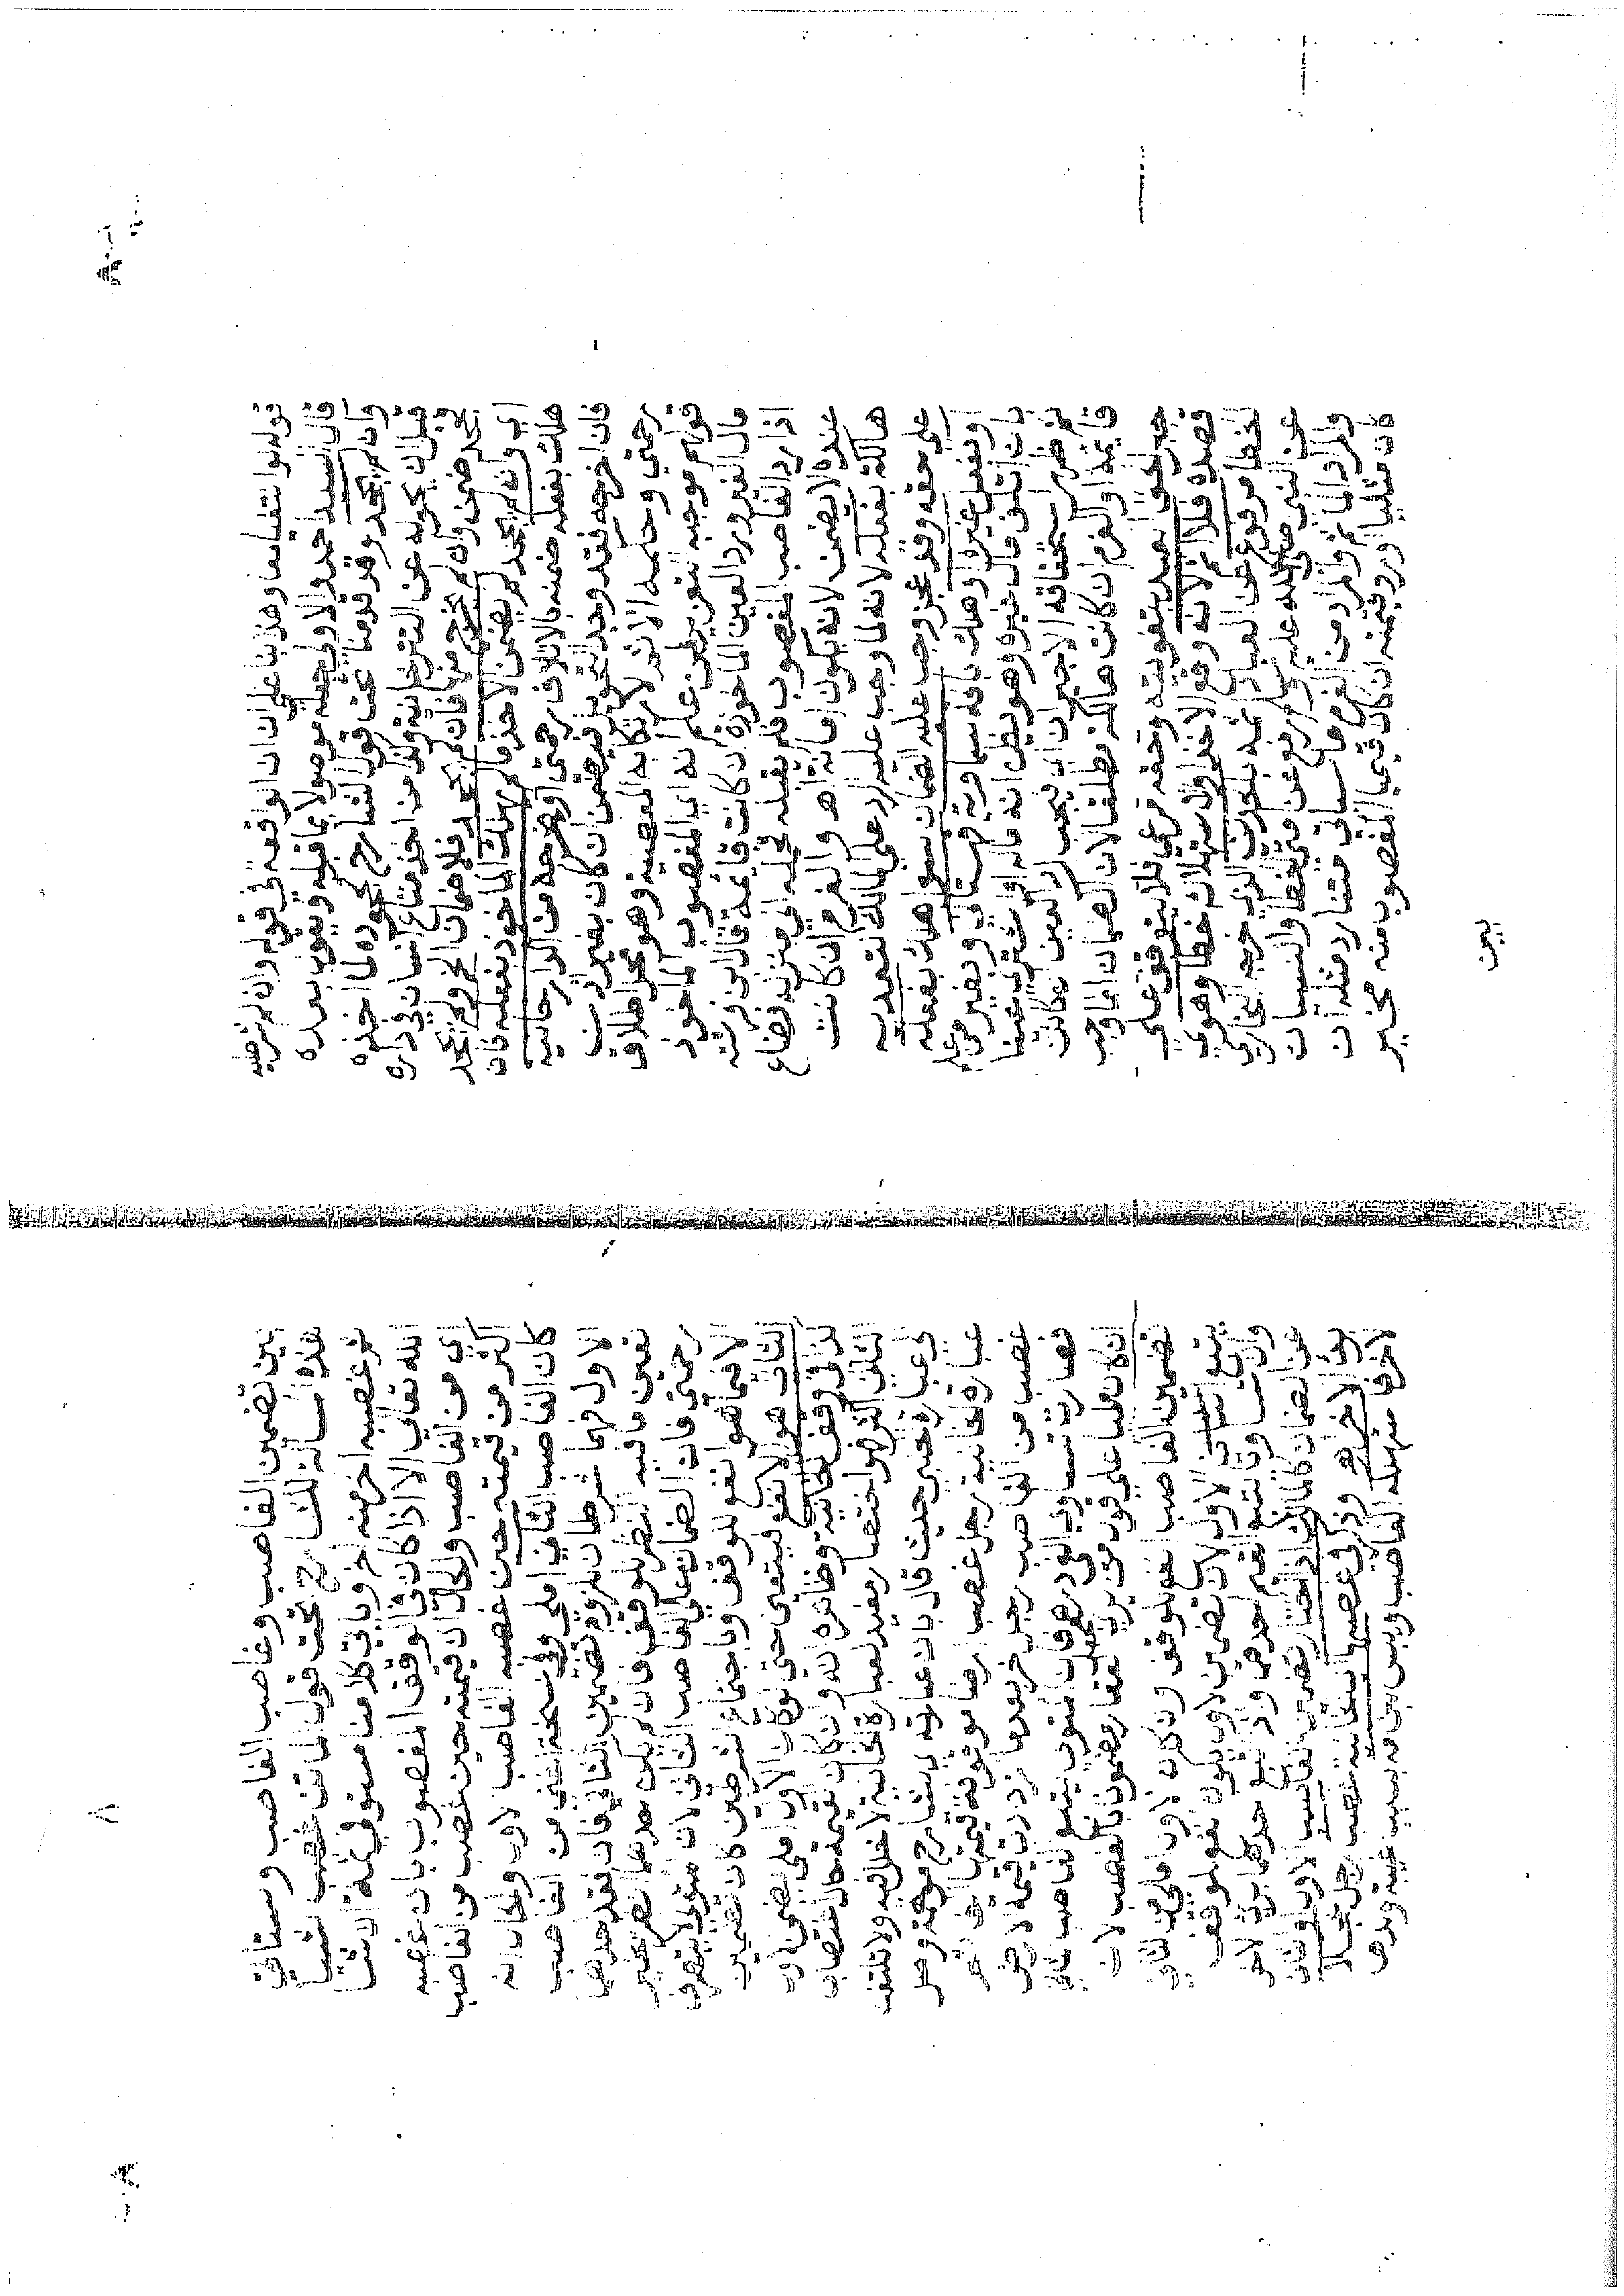 قوله لو انتفيا معا وهذا بناء على ان الواقعة في قوله وان لم شرطية
قال السيد احمد والاولى جعله موصولا بما قبله ويعود بعده
وان لم يجحد وقد قدمنا تحت قول الشارح بجحوده لما اخذه
قبل ان يحوله عن التترخانية ولو من اخذ متاع انسان في داره
جحد ضمن وان لم يخرج منها فان لم يجحد فلا ضمان لم يخرج يجحد
اي وان لم يجحد لم يضمن الاخذ ما لم يهلك الماخوذ بفعله فان
هلك بفعله ضمنه بالاتلاف رحمتي او يخرجه من الدار خانية
فان اخرجه فقد وجد التحويل فيضمن ان كان بغير اذن
رحمتي وحكمه الاثم لارتكابه المعصية وهو محل اطلاق
قولهم موجبه التعزير لمن علم انه اي المغصوب الماخوذ
مال الغير ورد العين الماخوذة ان كانت قايمة قال ابن فرشته
اذا رد الغاصب المغصوب فلم يقبله فحمله الى منزله فضاع
عنده لا يضمن لانه يكون امانة اهـ والغرم ان كانت
هالكة بفعله لانه لما وجب عليه الرد على المالك لتعديه
على حقه وقد عجز وجب عليه الضمان سوا هلك بفعله
او بفعل غيره او هلك بافة سماوية قهستاني ولغير من علم
بان اتلف مال غيره وهو يظن انه ماله او اشترى عينا
ثم ظهر استحقاقه الاخيران اي فيجب رد العين ان كانت
قايمة او الغرم ان كانت هالكة مطلقا لان الضمان انما وجب
جبر الحق العبد بتفويته وحقه مرعي فلا يتوقف على
قصده فلا اثم لانه وقع الاخذ او الاستهلاك خطا وهو اي
الخطا مرفوع عن العباد اثمه بالحديث الذي خرجه البخاري
عن النبي صلى الله عليه وسلم رفع عن امتي الخطا والنسيان
والمراد الماثم والمراد من الغرم ما سياتي متنا رد مثله ان
كان مثليا او رد قيمته ان كان قيميا المغصوب منه مخير
بين
بين تضمين الغاصب وغاصب الغاصب وستاتي
هذه المسالة للشارح تحت قول الماتن غصب شيا
ثم غصبه اخر منه اخر وياتي كلامنا مستوفي ثمة ان شا
الله تعالى الا اذا كان في الوقف المغصوب بان غصبه
اي من الغاصب والحال ان قيمته حين غصب من الغاصب
اكثر من قيمته حين غصبه الغاصب الاول والحال انه
كان الغاصب الثاني املى وفي نسخة اغنى من الغاصب
الاول فهما شرطان للزوم تضمين الثاني فان فقد احدهما
تعين ما فيه النظر للوقف فان لم يكن احدهما انظر تخير
رحمتي فان الضمان على الغاصب الثاني لان متولي لا يتصرف
الا فيما هو انفع للوقف وباجتماع الشرطين كان تضمين
الثاني هو الانفع فيتعين حتى لو كان الاول املى يضمن الاول
كذا في وقف الخانية وظاهره انه وان كان القيمة حال اغتصاب
الثاني اكثر فهو اختصار مفيد لعبارة الخانية لا خلل فيه ولا تلتفت
في عبارة الحلبي حيث قال بان عبارة الشارح موهمة واصل
عبارة الخانية رجل غصب ارضا موقوفة قيمتها الف ثم
غصب من الغاصب رجل اخر بعدما ازدادت قيمة الارض
فصارت تساوي الفي درهم فان المتولي يتبع الغاصب الثاني
ان كان مليا على قول من يرى العقار مضمونا بالغصب لان
تضمين الغاصب انفع للوقف وان كان الاول املى من الثاني
يتبع الاول لان تضمين الاول يكون انفع للوقف
وان تساويا تتبع القيم احدهما واذا اتبع احدهما برئ الاخر
عن الضمان كالمالك اذا اختار تضمين الغاصب الاول او الثاني
برئ الاخر اهـ وذكر في غصب الخانية غصب رجل عبدا
لاخر فاستهلكه الغاصب وليس بين قيمته وبدله